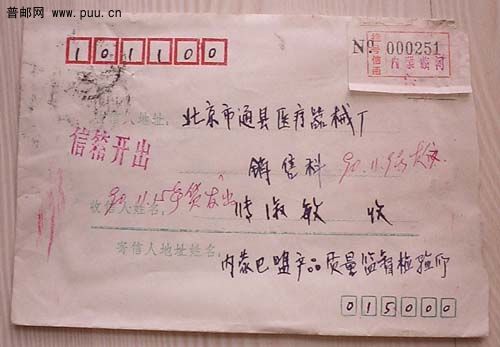 普邮网
www.puu.cn
101100
挂号信函
№ 000251
内蒙临河
收信人地址:
北京市通县医疗器械厂
信箱开出
销售科
90.11.9
90.11.15
收信人姓名:
淑敏 收
寄信人地址姓名:
内蒙巴盟产品质量监督检验所
015000